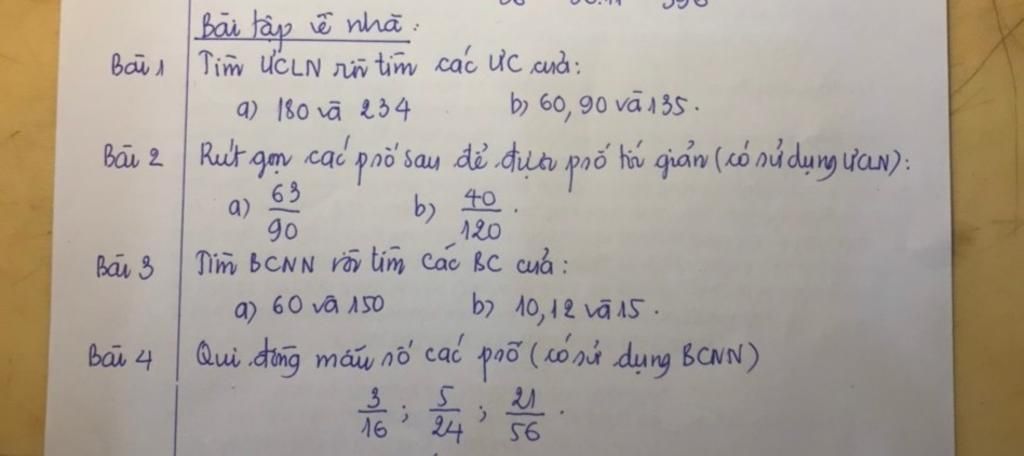 Bài tập về nhà:
Bài 1 Tìm ƯCLN rồi tìm các ƯC của:
a) 180 và 234 b) 60, 90 và 135.
Bài 2 Rút gọn các phố sau để được phố tối giản (có sử dụng ƯCLN):
a) 63/90 b) 40/120.
Bài 3 Tìm BCNN rồi tìm các BC của:
a) 60 và 150 b) 10, 12 và 15.
Bài 4 Qui đồng mẫu số các phố (có sử dụng BCNN)
3/16 ; 5/24 ; 21/56.